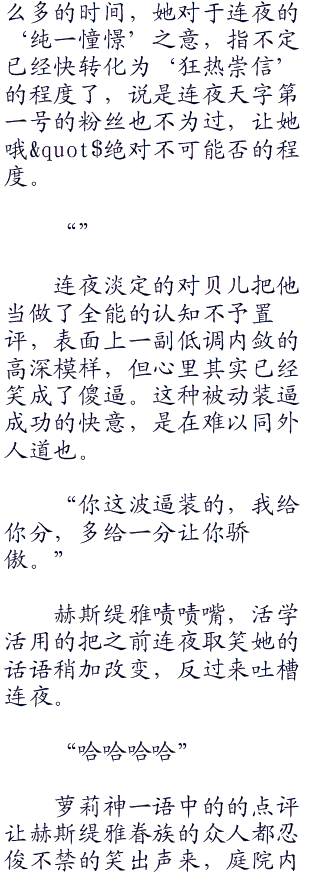 么多的时间，她对于连夜的
‘纯一憧憬’之意，指不定
已经快转化为‘狂热崇信’
的程度了，说是连夜天字第
一号的粉丝也不为过，让她
哦&quot$绝对不可能否的程
度。
“”
连夜淡定的对贝儿把他
当做了全能的认知不予置
评，表面上一副低调内敛的
高深模样，但心里其实已经
笑成了傻逼。这种被动装逼
成功的快意，是在难以同外
人道也。
“你这波逼装的，我给
你分，多给一分让你骄
傲。”
赫斯缇雅啧啧嘴，活学
活用的把之前连夜取笑她的
话语稍加改变，反过来吐槽
连夜。
“哈哈哈哈”
萝莉神一语中的的点评
让赫斯缇雅眷族的众人都忍
俊不禁的笑出声来，庭院内